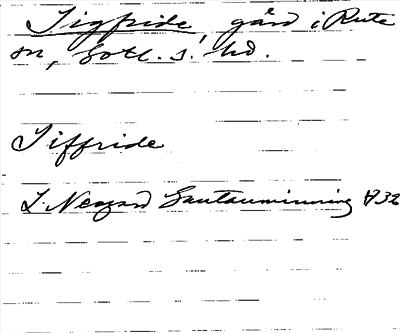 Sigfride, gård i Rute
sn, Gotl. s. hd.
Siffride
L. Neogard Gautauminning 32